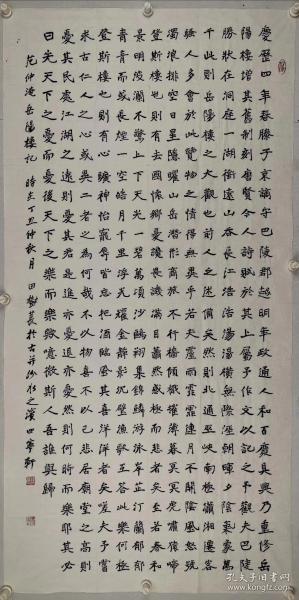 慶歷四年春滕子京謫守巴陵郡越明年政通人和百廢具興乃重修岳
陽樓增其舊制刻唐賢今人詩賦於其上屬予作文以記之予觀夫巴陵
勝狀在洞庭一湖銜遠山吞長江浩浩湯湯橫無際涯朝暉夕陰氣象萬
千此則岳陽樓之大觀也前人之述備矣然則北通巫峽南極瀟湘遷客
騷人多會於此覽物之情得無異乎若夫霪雨霏霏連月不開陰風怒號
濁浪排空日星隱曜山岳潛形商旅不行檣傾楫摧薄暮冥冥虎嘯猿啼
登斯樓也則有去國懷鄉憂讒畏譏滿目蕭然感極而悲者矣至若春和
景明波瀾不驚上下天光一碧萬頃沙鷗翔集錦鱗游泳岸芷汀蘭郁郁
青青而或長煙一空皓月千里浮光躍金靜影沉璧漁歌互答此樂何極
登斯樓也則有心曠神怡寵辱皆忘把酒臨風其喜洋洋者矣嗟夫予嘗
求古仁人之心或異二者之為何哉不以物喜不以己悲居廟堂之高則
憂其民處江湖之遠則憂其君是進亦憂退亦憂然則何時而樂耶其必
曰先天下之憂而憂後天下之樂而樂歟噫微斯人吾誰與歸
范仲淹岳陽樓記 時在丁丑仲秋月 田樹萇於古并汾水之濱四寧軒